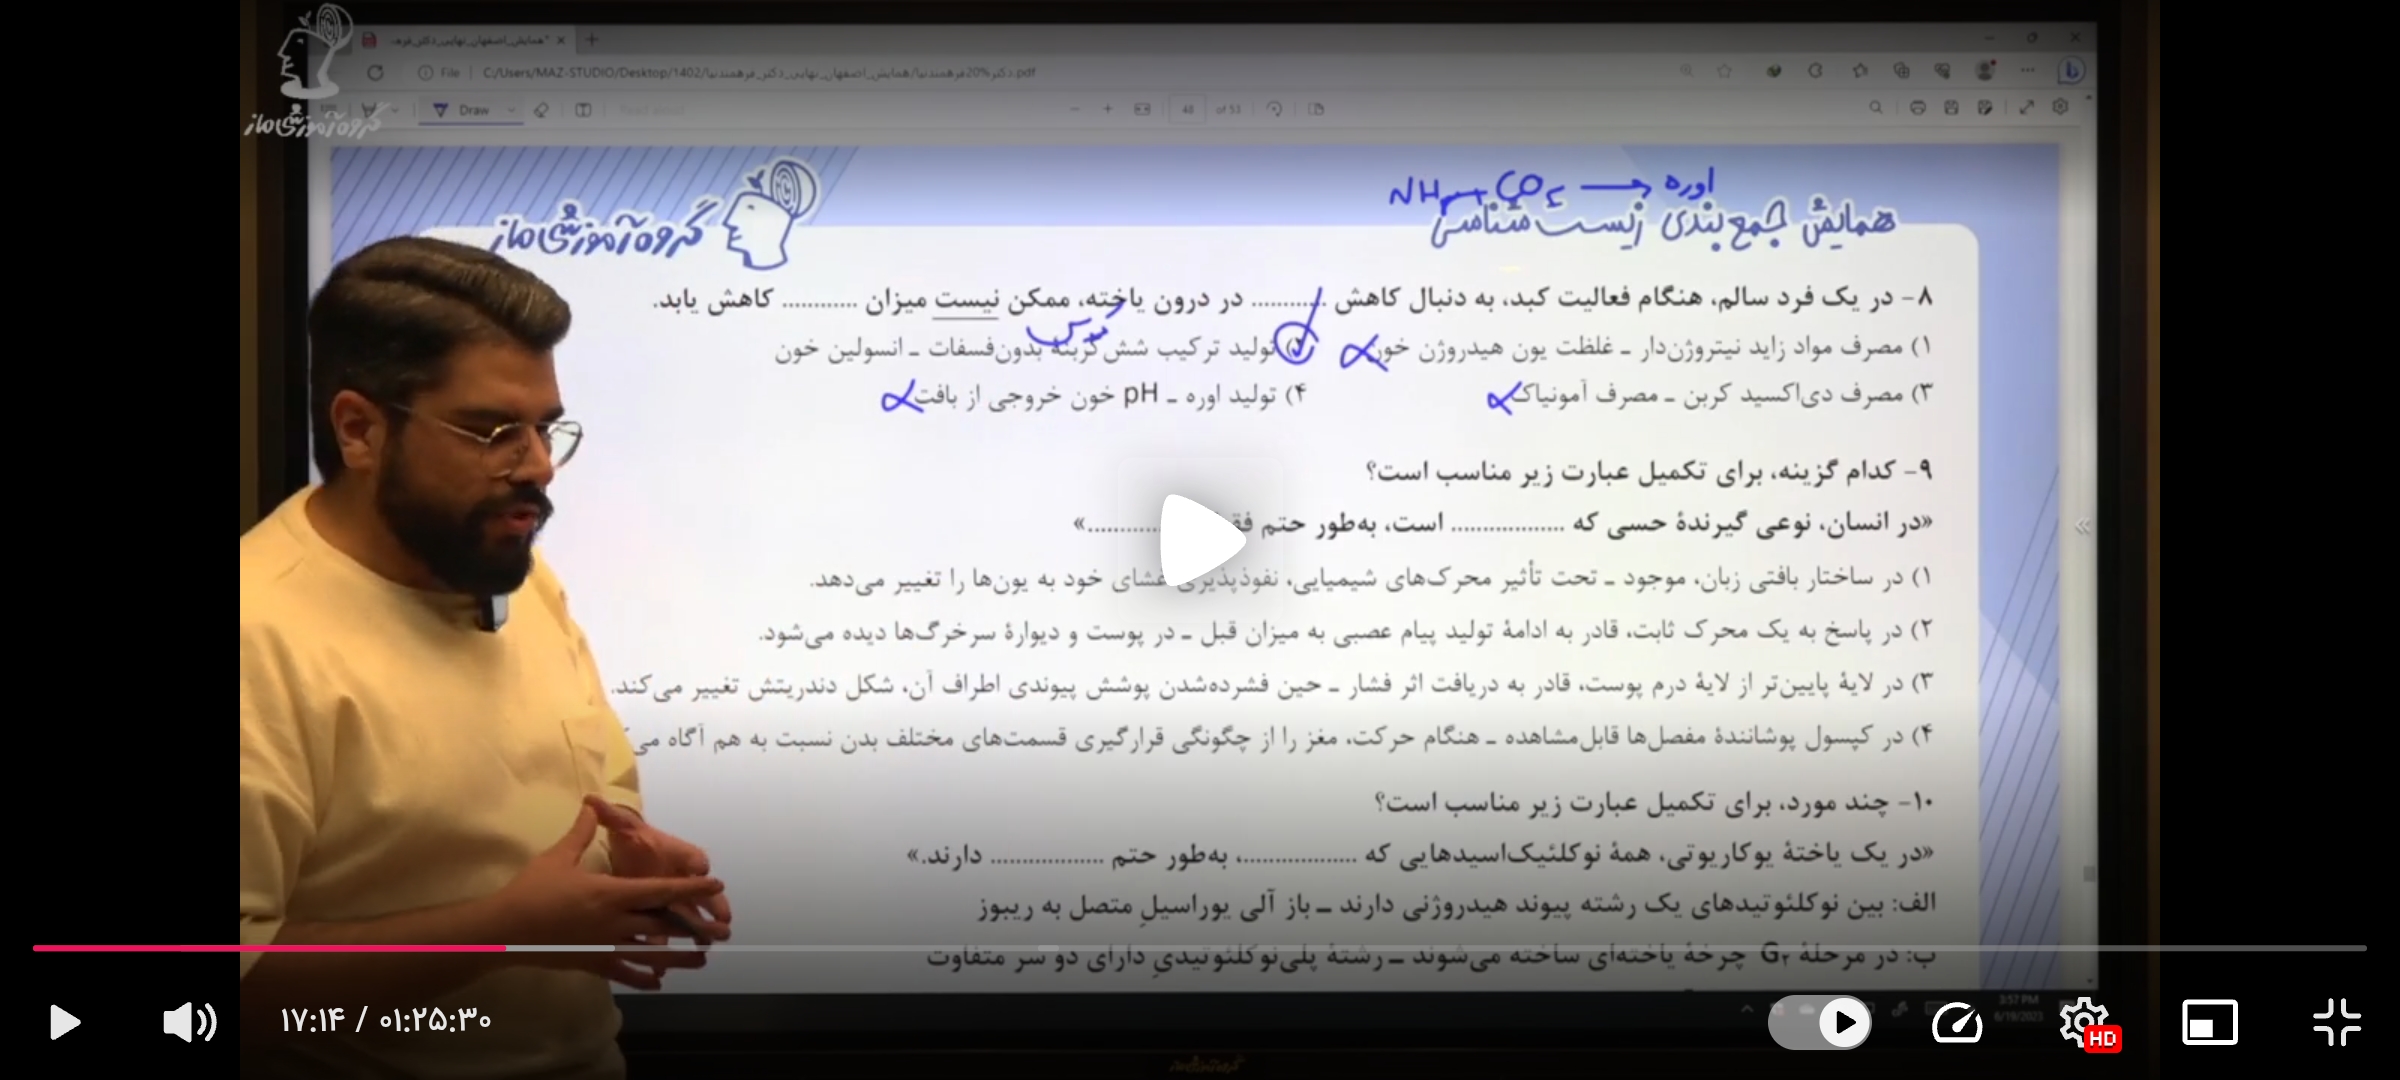 گروه آموزشی ماز
همایش_اصفهان_نهایی_دکتر_فرهـ
File C:/Users/MAZ-STUDIO/Desktop/1402/همایش_اصفهان_نهایی_دکتر_فرهمندنیا/دکتر%20فرهمندنیا.pdf
Draw 48 of 51
اوره → NH₃ + CO₂
همایش جمع بندی زیست شناسی
گروه آموزشی ماز
۸- در یک فرد سالم، هنگام فعالیت کبد، به دنبال کاهش ............ در درون یاخته، ممکن نیست میزان ............ کاهش یابد.
۱) مصرف مواد زاید نیتروژن‌دار ـ غلظت یون هیدروژن خون ۲) تولید ترکیب شش‌کربنه بدون‌فسفات ـ انسولین خون
۳) مصرف دی‌اکسید کربن ـ مصرف آمونیاک ۴) تولید اوره ـ pH خون خروجی از بافت
۹- کدام گزینه، برای تکمیل عبارت زیر مناسب است؟
«در انسان، نوعی گیرندهٔ حسی که ................. است، به‌طور حتم ............»
۱) در ساختار بافتی زبان، موجود ـ تحت تأثیر محرک‌های شیمیایی، نفوذپذیری غشای خود به یون‌ها را تغییر می‌دهد.
۲) در پاسخ به یک محرک ثابت، قادر به ادامهٔ تولید پیام عصبی به میزان قبل ـ در پوست و دیوارهٔ سرخرگ‌ها دیده می‌شود.
۳) در لایهٔ پایین‌تر از لایهٔ درم پوست، قادر به دریافت اثر فشار ـ حین فشرده‌شدن پوشش پیوندی اطراف آن، شکل دندریتش تغییر می‌کند.
۴) در کپسول پوشانندهٔ مفصل‌ها قابل‌مشاهده ـ هنگام حرکت، مغز را از چگونگی قرارگیری قسمت‌های مختلف بدن نسبت به هم آگاه می
۱۰- چند مورد، برای تکمیل عبارت زیر مناسب است؟
«در یک یاختهٔ یوکاریوتی، همهٔ نوکلئیک‌اسیدهایی که .................، به‌طور حتم ................. دارند.»
الف: بین نوکلئوتیدهای یک رشته پیوند هیدروژنی دارند ـ باز آلی یوراسیلِ متصل به ریبوز
ب: در مرحلهٔ G۲ چرخهٔ یاخته‌ای ساخته می‌شوند ـ رشتهٔ پلی‌نوکلئوتیدیِ دارای دو سر متفاوت
3:57 PM
6/19/2023
گروه آموزشی ماز
۱۷:۱۴ / ۰۱:۲۵:۳۰
HD